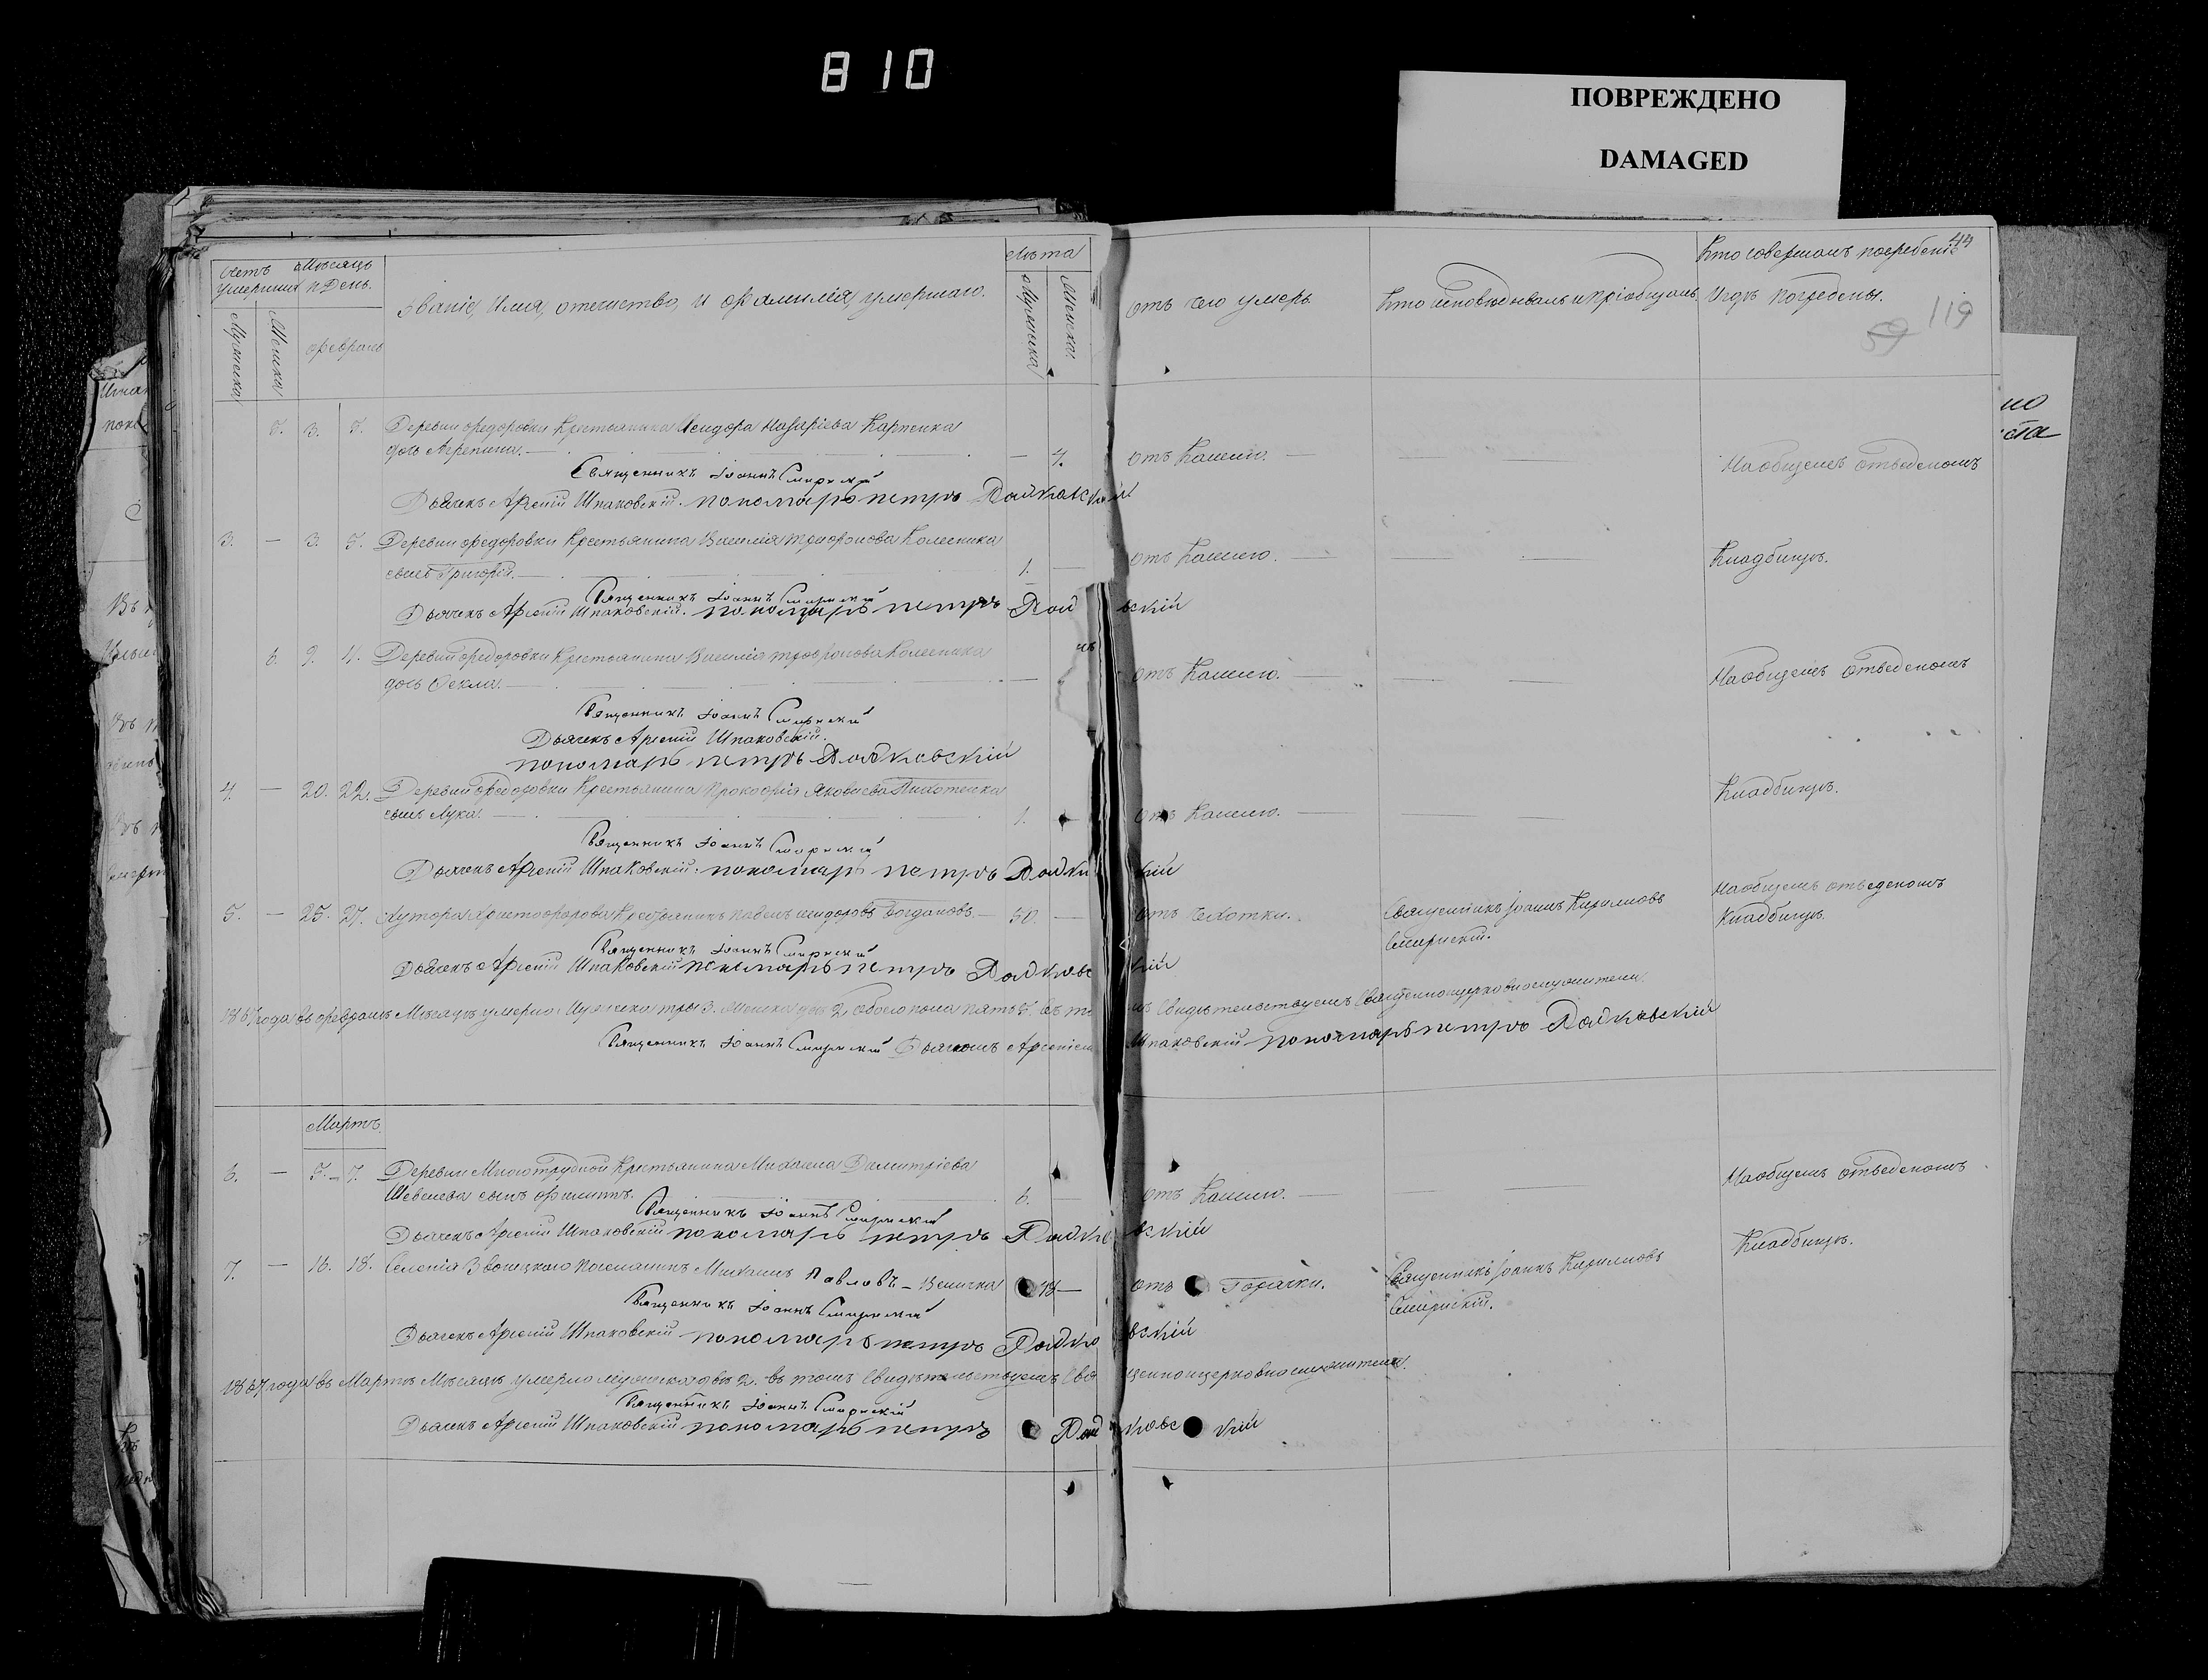 810
ПОВРЕЖДЕНО
DAMAGED
44
119
59
Счетъ умершихъ
Мѣсяцъ и День.
Званіе, Имя, отчество, и фамилія, умершаго.
Лѣта
Мужеска
Женска
Февраль
Мужеска
Женска.
отъ чего умеръ
Кто исповѣдывалъ и пріобщалъ.
Кто совершалъ погребеніе
Игдѣ погребены.
5. 3. 5. Деревни Федоровки Крестьянина Исидора Назаріева Карпенка
дочь Агрепина. — 4. отъ Кашлю. — Наобщемъ отведеномъ
Священникъ Іоаннъ Смирнскій
Дьячекъ Арсеній Шпаковскій. пономарь петръ Дойковскій
3. — 3. 5. Деревни Федоровки Крестьянина Василія Трофимова Колесника
сынъ Григорій. — 1. — отъ Кашлю. — Кладбищѣ.
Священникъ Іоаннъ Смирнскій
Дьячекъ Арсеній Шпаковскій. пономарь петръ Дой вскій
6. 9. 11. Деревни Федоровки Крестьянина Василія Трофимова Колесника
дочь Фекла. — отъ Кашлю. — Наобщемъ отведеномъ
Священникъ Іоаннъ Смирнскій
Дьячекъ Арсеній Шпаковскій.
пономарь петръ Дойковскій
4. — 20. 22. Деревни Федоровки Крестьянина Прокофія Яковлева Пихотенка Кладбищѣ.
сынъ Лука. — 1. отъ Кашлю. —
Священникъ Іоаннъ Смирнскій
Дьячекъ Арсеній Шпаковскій. пономарь петръ Дойк кій
5. — 25. 27. Хутора Христофорова Крестьянинъ павелъ исидоровъ Богдановъ — 50 — отъ чехотки. Священникъ Іоаннъ Кириловъ Наобщемъ отведеномъ
Смирнскій. Кладбищѣ.
Священникъ Іоаннъ Смирнскій
Дьячекъ Арсеній Шпаковскій пономарь петръ Дойковс кій
1867 года въ февралѣ Мѣсяцѣ умерло Мужеска три 3. Женска двѣ 2. обоего пола пять 5. въ то мъ Свидѣтельствуемъ Священноцерковнослужители.
Священникъ Іоаннъ Смирнскій Дьячекъ Арсеній Шпаковскій пономарь петръ Дойковскій
Мартъ
6. — 5. — 7. Деревни Многотрудной Крестьянина Михаила Димитріева
Шевелева сынъ филиппъ. 6. — отъ Кашлю. — Наобщемъ отведеномъ
Священникъ Іоаннъ Смирнскій
Дьячекъ Арсеній Шпаковскій пономарь петръ Дойко вскій
7. — 16. 18. Селенія Звонецкого поселянинъ Михаилъ Павловъ — Величка 48 — отъ Горячки. Священникъ Іоаннъ Кириловъ Кладбищѣ.
Смирнскій.
Священникъ Іоаннъ Смирнскій
Дьячекъ Арсеній Шпаковскій пономарь петръ Дойко вскій
1867 года въ Мартѣ Мѣсяцѣ умерло мужеска двѣ 2. въ томъ Свидѣтельствуемъ Свя щенноцерковнослужители.
Священникъ Іоаннъ Смирнскій
Дьячекъ Арсеній Шпаковскій пономарь петръ Дой ковс кій